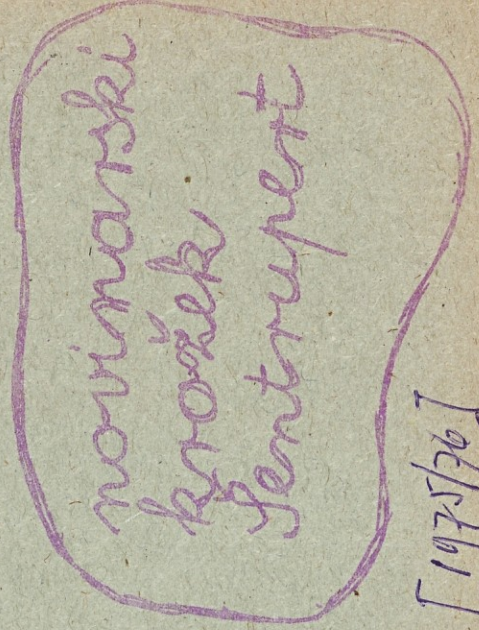 novinarski
krožek
Šentrupert
[1975/76]